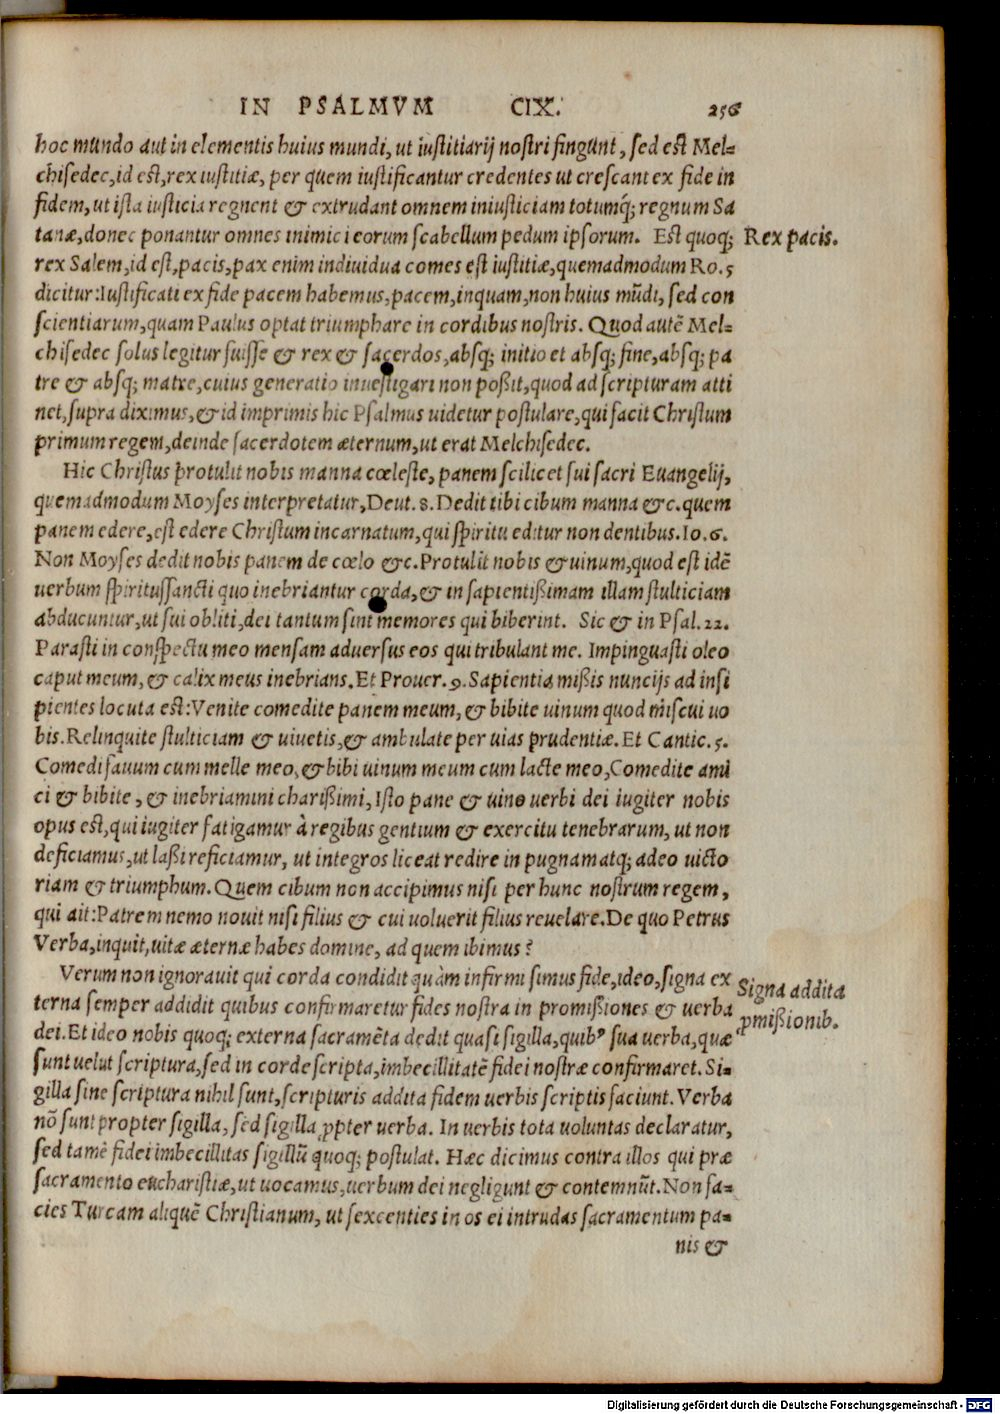 IN PSALMVM CIX. 256
hoc mundo aut in elementis huius mundi, ut iustitiarij nostri fingunt, sed est Mel=
chisedec, id est, rex iustitiæ, per quem iustificantur credentes ut crescant ex fide in
fidem, ut ista iusticia regnent & extrudant omnem iniusticiam totumq́; regnum Sa
tanæ, donec ponantur omnes inimici eorum scabellum pedum ipsorum. Est quoq;
Rex pacis.
rex Salem, id est, pacis, pax enim indiuidua comes est iustitiæ, quemadmodum Ro. 5
dicitur: Iustificati ex fide pacem habemus, pacem, inquam, non huius mũdi, sed con
scientiarum, quam Paulus optat triumphare in cordibus nostris. Quod autẽ Mel=
chisedec solus legitur fuisse & rex & sacerdos, absq; initio et absq; fine, absq; pa
tre & absq; matre, cuius generatio inuestigari non poßit, quod ad scripturam atti
net, supra diximus, & id imprimis hic Psalmus uidetur postulare, qui facit Christum
primum regem, deinde sacerdotem æternum, ut erat Melchisedec.
Hic Christus protulit nobis manna cœleste, panem scilicet sui sacri Euangelij,
quemadmodum Moyses interpretatur, Deut. 8. Dedit tibi cibum manna &c. quem
panem edere, est edere Christum incarnatum, qui spiritu editur non dentibus. Io. 6.
Non Moyses dedit nobis panem de cœlo &c. Protulit nobis & uinum, quod est idẽ
uerbum spiritussancti quo inebriantur corda, & in sapientißimam illam stulticiam
abducuntur, ut sui obliti, dei tantum sint memores qui biberint. Sic & in Psal. 22.
Parasti in conspectu meo mensam aduersus eos qui tribulant me. Impinguasti oleo
caput meum, & calix meus inebrians. Et Prouer. 9. Sapientia mißis nuncijs ad insi
pientes locuta est: Venite comedite panem meum, & bibite uinum quod miscui uo
bis. Relinquite stulticiam & uiuetis, & ambulate per uias prudentiæ. Et Cantic. 5.
Comedi fauum cum melle meo, & bibi uinum meum cum lacte meo, Comedite ami
ci & bibite, & inebriamini charißimi, Isto pane & uino uerbi dei iugiter nobis
opus est, qui iugiter fatigamur à regibus gentium & exercitu tenebrarum, ut non
deficiamus, ut laßi reficiamur, ut integros liceat redire in pugnam atq; adeo uicto
riam & triumphum. Quem cibum non accipimus nisi per hunc nostrum regem,
qui ait: Patrem nemo nouit nisi filius & cui uoluerit filius reuelare. De quo Petrus
Verba, inquit, uitæ æternæ habes domine, ad quem ibimus?
Verum non ignorauit qui corda condidit quàm infirmi simus fide, ideo, signa ex
Signa addita
terna semper addidit quibus confirmaretur fides nostra in promißiones & uerba
ꝓmißionib.
dei. Et ideo nobis quoq; externa sacramẽta dedit quasi sigilla, quibꝰ sua uerba, quæ
sunt uelut scriptura, sed in corde scripta, imbecillitatẽ fidei nostræ confirmaret. Si=
gilla sine scriptura nihil sunt, scripturis addita fidem uerbis scriptis faciunt. Verba
nõ sunt propter sigilla, sed sigilla ꝓpter uerba. In uerbis tota uoluntas declaratur,
sed tamẽ fidei imbecillitas sigillũ quoq; postulat. Hæc dicimus contra illos qui præ
sacramento eucharistiæ, ut uocamus, uerbum dei negligunt & contemnũt. Non fa=
cies Turcam aliquẽ Christianum, ut sexcenties in os ei intrudas sacramentum pa=
nis &
Digitalisierung gefördert durch die Deutsche Forschungsgemeinschaft - DFG